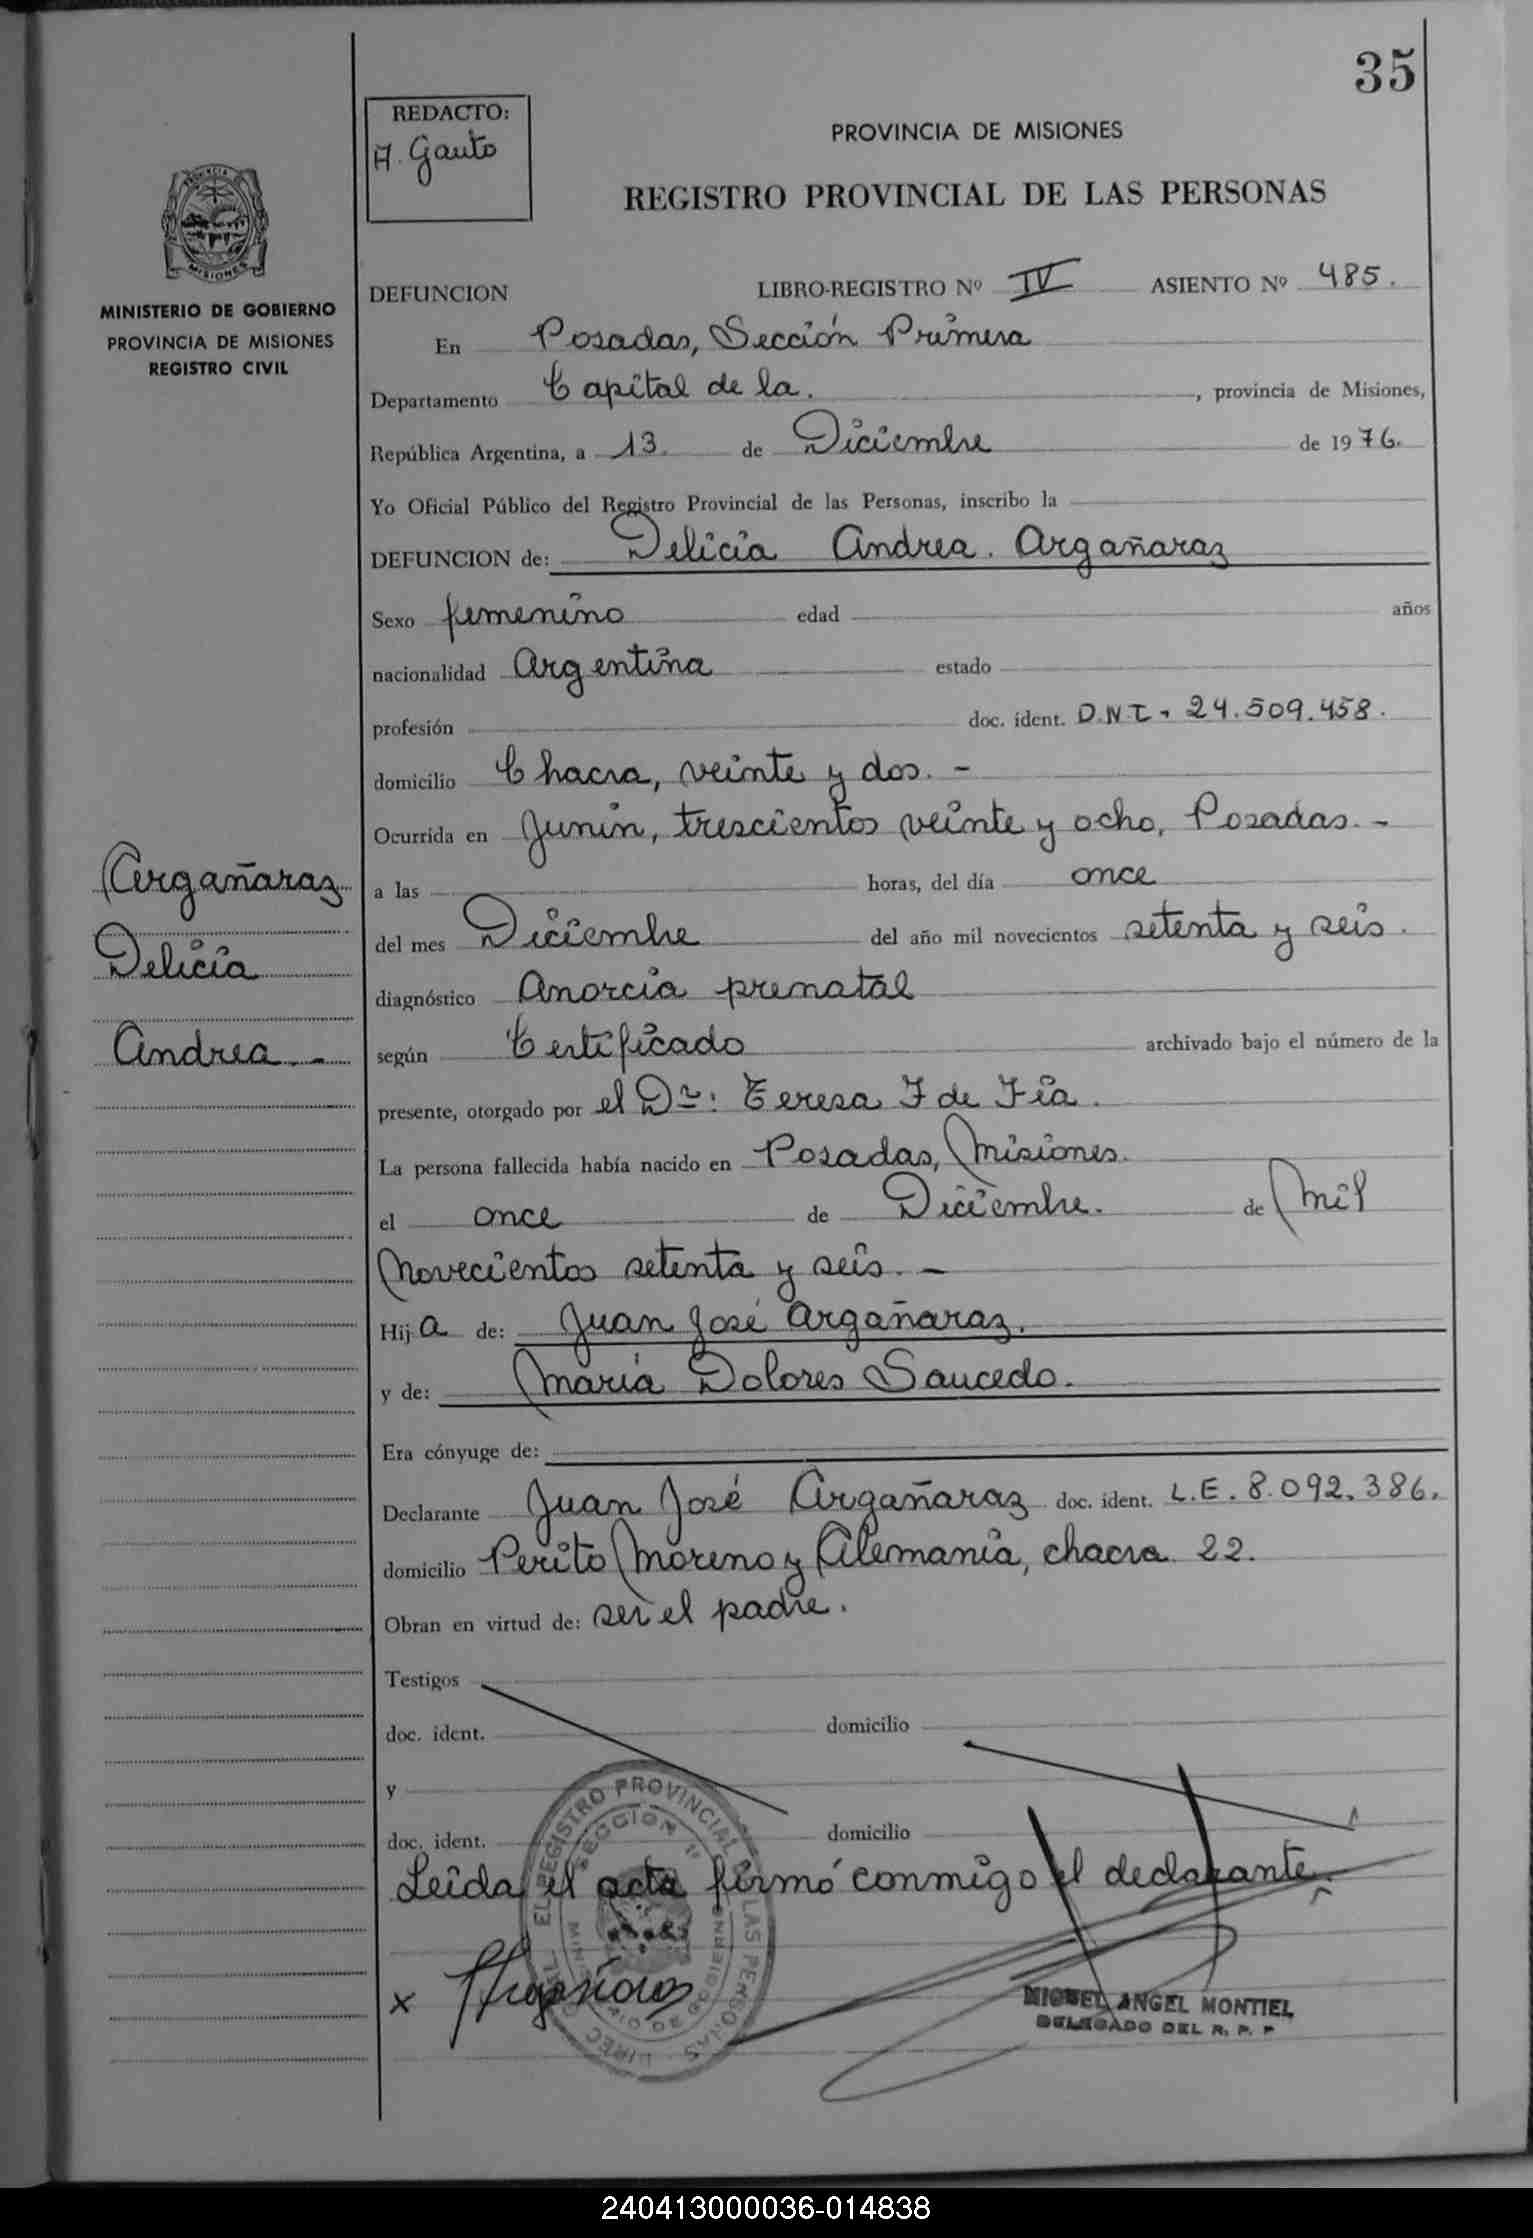 35
REDACTO:
A. Gauto
PROVINCIA DE MISIONES
REGISTRO PROVINCIAL DE LAS PERSONAS
MISIONES
MINISTERIO DE GOBIERNO
PROVINCIA DE MISIONES
REGISTRO CIVIL
DEFUNCION LIBRO-REGISTRO Nº IV ASIENTO Nº 485.
En Posadas, Sección Primera
Departamento Capital de la. , provincia de Misiones,
República Argentina, a 13. de Diciembre de 1976.
Yo Oficial Público del Registro Provincial de las Personas, inscribo la
DEFUNCION de: Delicia Andrea. Argañaraz
Sexo femenino edad años
nacionalidad Argentina estado
profesión doc. ident. D.N.I. 24.509.458.
domicilio Chacra, veinte y dos. -
Ocurrida en Junin, trescientos veinte y ocho, Posadas. -
a las horas, del día once
del mes Diciembre del año mil novecientos setenta y seis.
diagnóstico Anorcia prenatal
según Certificado archivado bajo el número de la
presente, otorgado por el Dr: Teresa F de Fia.
La persona fallecida había nacido en Posadas, Misiones.
el once de Diciembre. de Mil
Novecientos setenta y seis. -
Hija de: Juan José Argañaraz.
y de: María Dolores Saucedo.
Era cónyuge de:
Declarante Juan José Argañaraz doc. ident. L.E. 8.092.386.
domicilio Perito Moreno y Alemania, chacra 22.
Obran en virtud de: ser el padre.
Testigos
doc. ident. domicilio
y
doc. ident. domicilio
Leida el acta firmó conmigo el declarante.
Argañaraz
Delicia
Andrea. -
x
REGISTRO PROVINCIAL DE LAS PERSONAS
SECCION 1ª
MINISTERIO DE GOBIERNO
MIGUEL ANGEL MONTIEL
DELEGADO DEL R. P. P
240413000036-014838